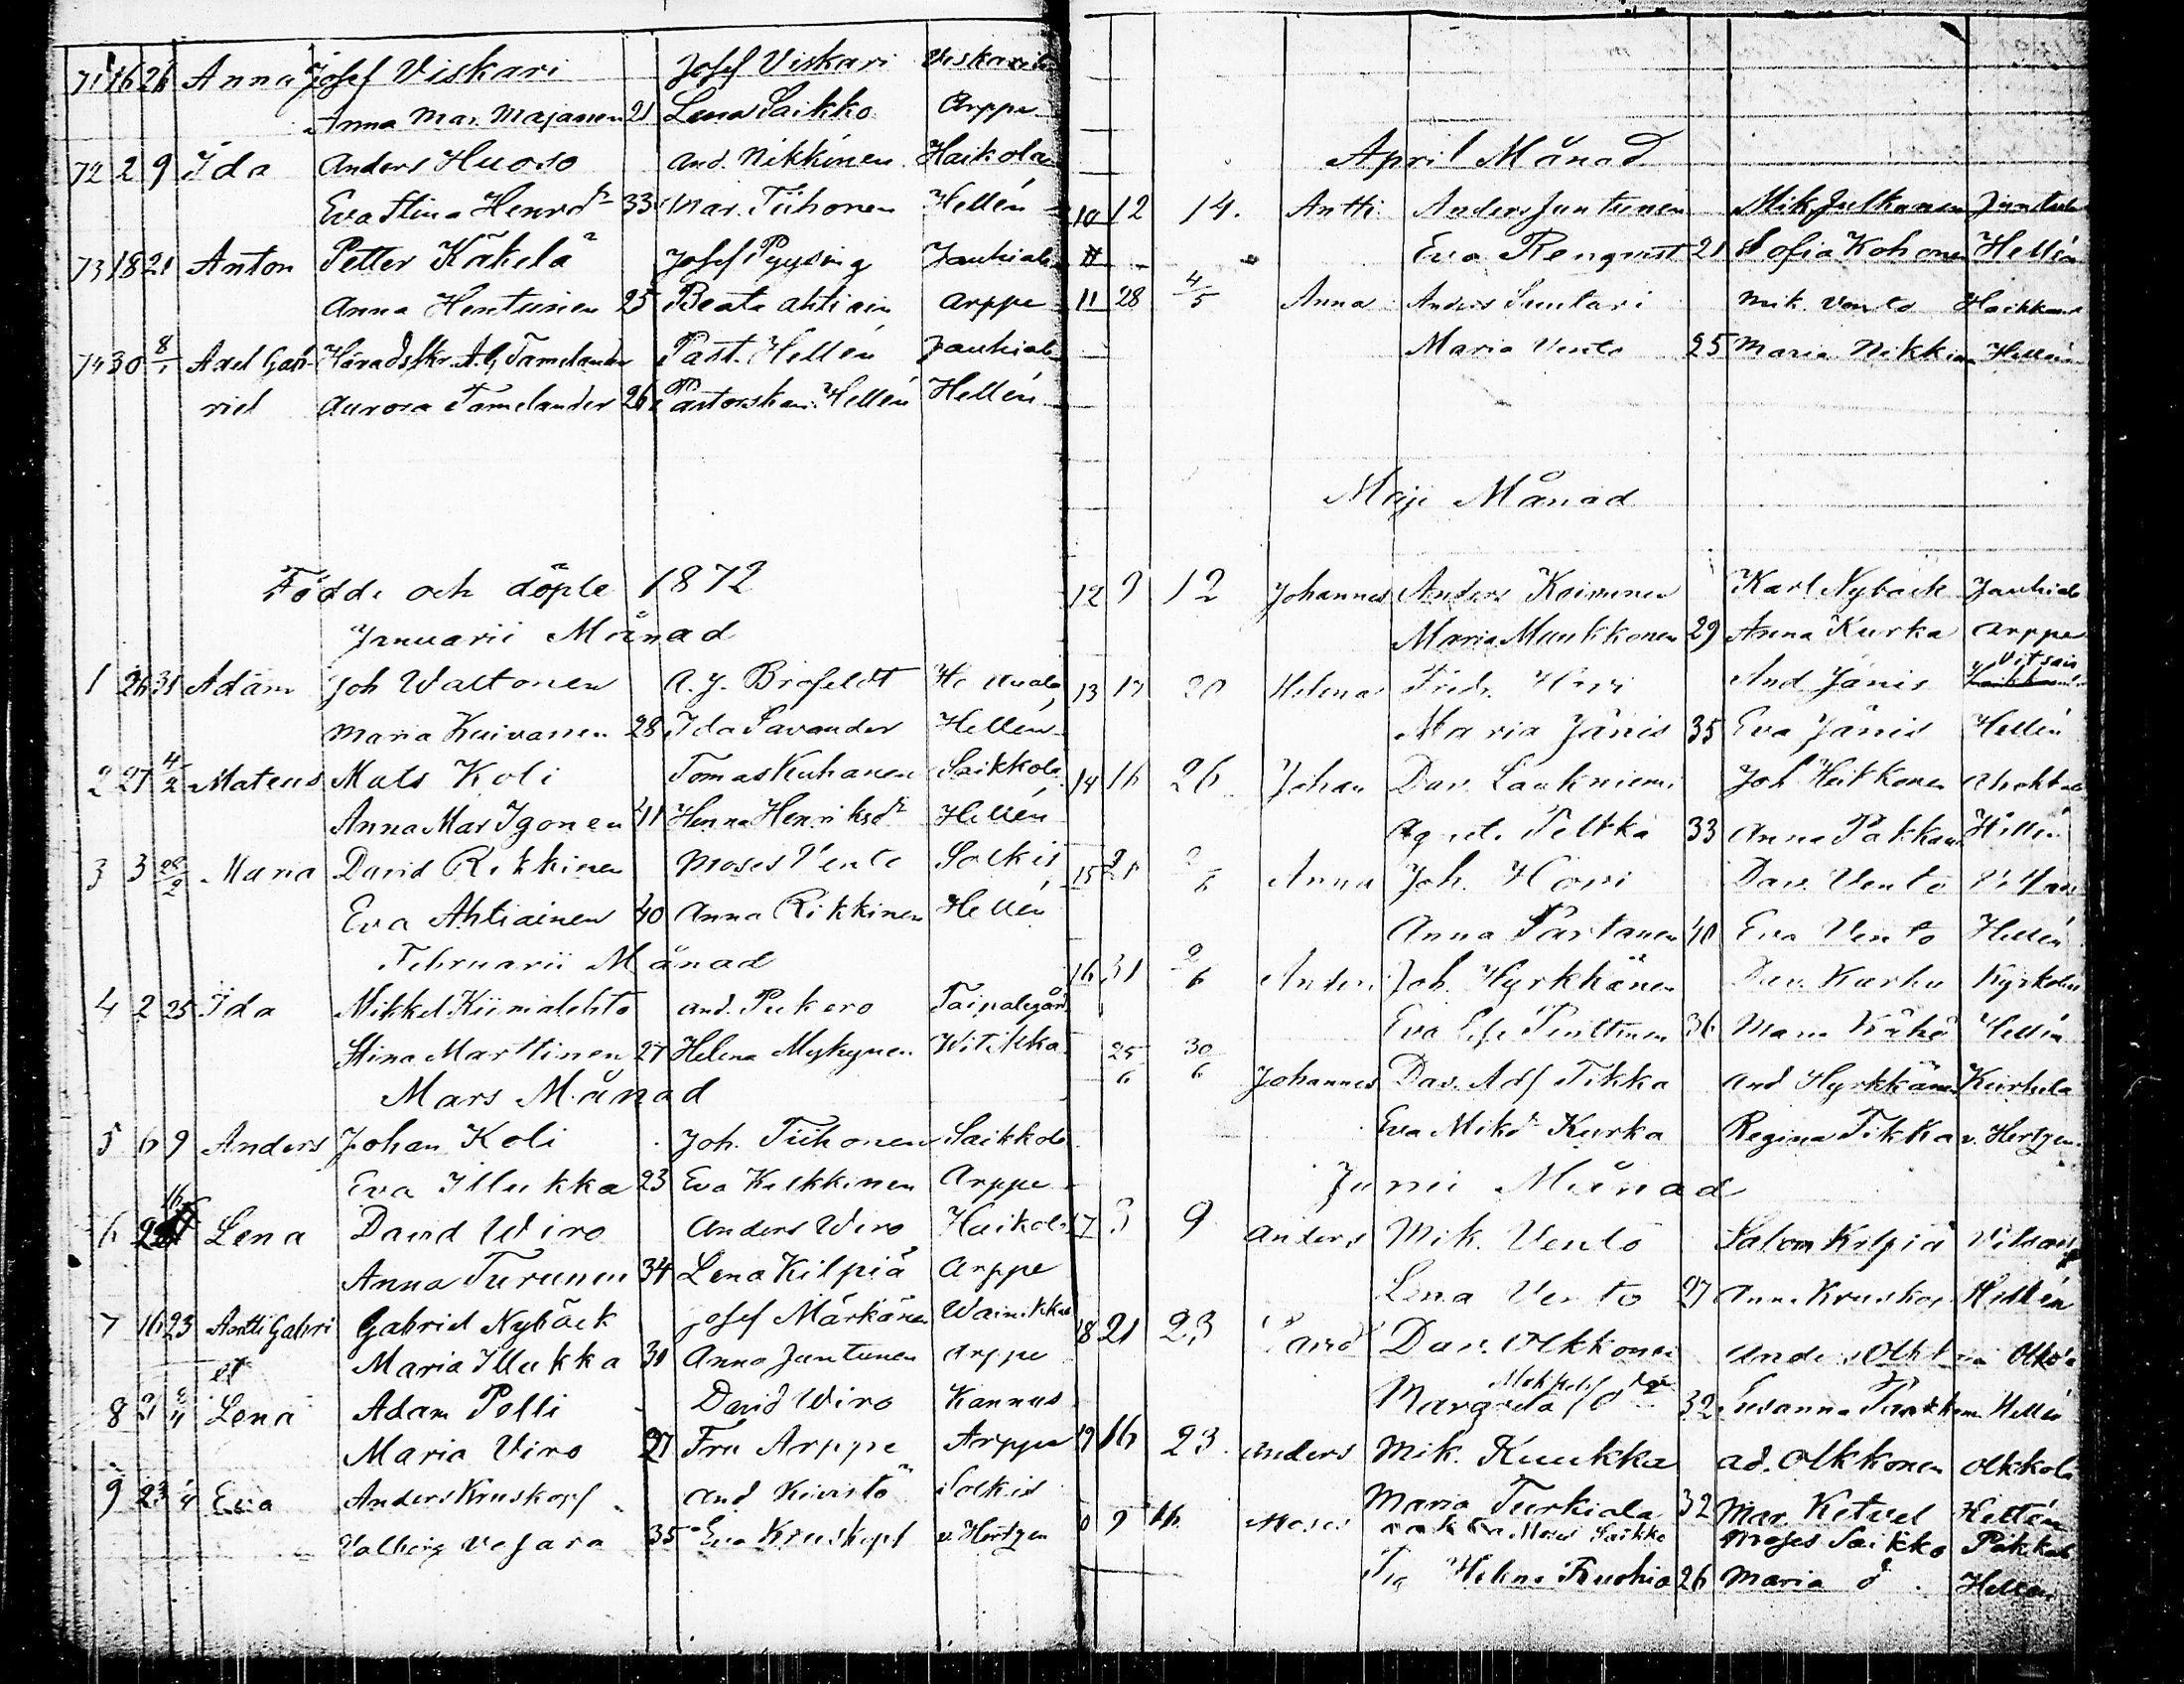 71 16 26 Anna Josef Viskari Josef Viskari Viskarila
Anna Mar. Majanen 21 Lena Saikko Arppe
72 2 9 Ida Anders Huoso And. Nikkinen Haikola
Eva Stina Henrdr 33 Mar. Tiihonen Hellén
73 18 21 Anton Petter Käkelä Josef Pyysing Jauhiala
Anna Hentunen 25 Beata Ahtiain Arppe
74 30 8/1 Axel Gab- Häradsskr. A. G. Tamelander Past. Hellén Jauhiala
riel Aurora Tamelander 26 Pastorskan Hellén Hellén
Födde och döpte 1872
Januarii Månad
1 26 31 Adam Joh Waltonen A. J. Brofeldt
Maria Kuivanen 28 Ida Savander Hellén
2 27 4/2 Mateus Mats Koli Tomas Kuhanen Saikkola
Anna Mar Igonen 41 Henna Henriksdr Hellén
3 3 Maria David Rikkinen Moses Vento Solkis
Eva Ahtiainen 40 Anna Rikkinen Hellén
Februarii Månad
4 2 25 Ida Mikkel Kiimalehto And. Pukero Taipalegård
Stina Marttinen 27 Helena Mykynen Witikka
Mars Månad
5 6 9 Anders Johan Koli Joh. Tiihonen Saikkola
Eva Illukka 23 Eva Kulkkinen Arppe
6 Lena David Wiro Anders Wiro Haikola
Anna Turunen 34 Lena Kilpiä Arppe
7 16 23 Antti Gabri Gabriel Nybäck Josef Märkänen Wainikka
el Maria Illukka 30 Anna Juntunen Arppe
8 Lena Adam Polli David Wiro Kannus
Maria Viro 27 Fru Arppe Arppe
9 23 Eva Anders Kruskopf And Kivistö Solkis
Valborg Vesara 35 Eva Kruskopf v. Hertzen
April Månad
10 12 14. Antti Anders Juntunen Mik Julkunen
Eva Renqvist 21 Sofia Kohonen Hellén
11 28 4/5 Anna Anders Suntari Mik. Vento
Maria Vento 25 Maria Nikkinen Hellén
Maji Månad
12 9 12 Johannes Anders Koivunen Karl Nyback Jauhiala
Maria Muukkonen 29 Anna Kurka Arppe
13 17 20 Helena And Jänis Vitsai
Maria Jänis 35 Eva Jänis Hellén
14 16 26 Johan Dav. Laukniemi Joh Heikkonen
Agneta Peltka 33 Anna Pakkanen Hellén
15 21 Anna Joh. Howi Dav. Vento
Anna Partanen 40 Eva Vento Hellén
16 31 2/6 Anders Joh. Hyrkkänen Dav. Karhu
Eva 36 Maria Hellén
25/6 30/6 Johannes Dav. Adf Tikka And Hyrkkänen Kurhela
Eva Mikdr Kurka Regina Tikka v. Hertzen
Junii Månad
17 3 9 Anders Mik. Vento Salom Kilpiä Vilsais
Lena Vento 27 Anna Kruskop Hellén
18 21 23 David Dav. Olkkonen Anders Olkkonen
Margreta 32 Susanna Hellén
19 16 23. Anders Mik. Kuukka Ad. Olkkonen Olkkola
Maria Turkiala 32 Mar. Ketvel Hellén
9 16 Moses Moses Saikko Moses Saikko Pakkola
Helena Ruohia 26 Maria d Hellén